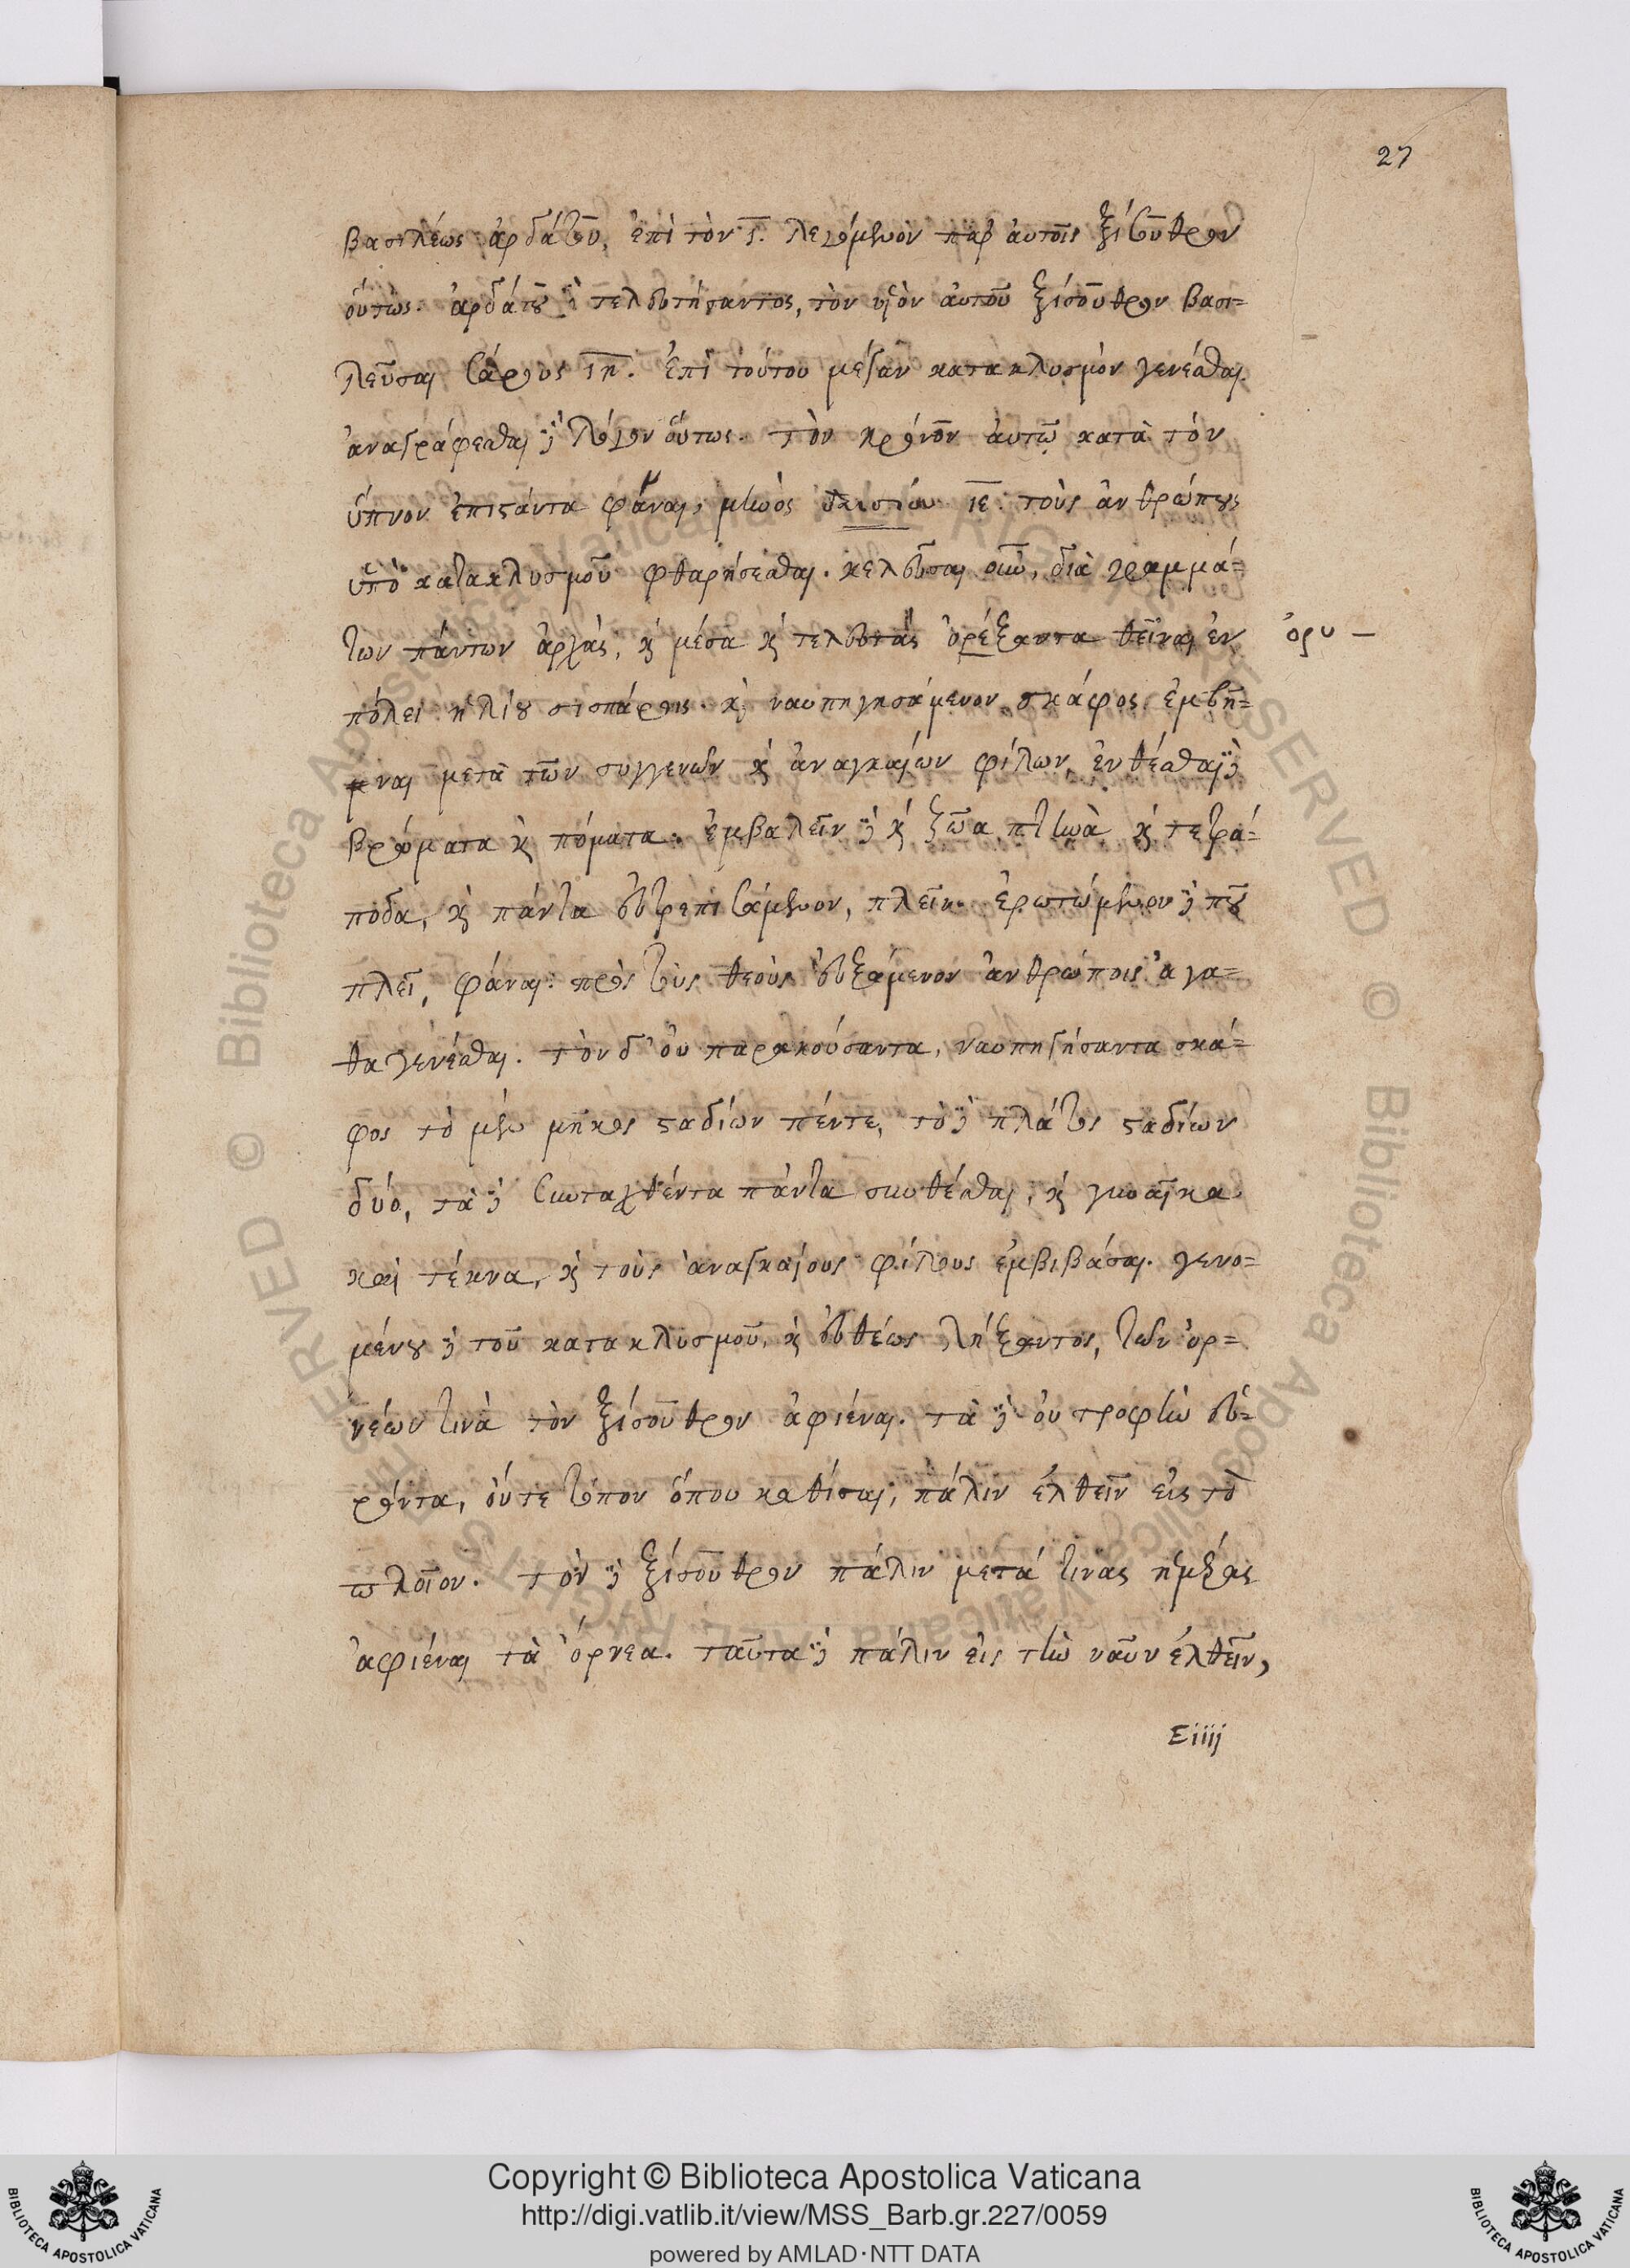 27
βασιλέως ἀρδάτου, ἐπὶ τὸν ι. λεγόμενον παρ αυτοῖς ξίσουθρον
ὅυτως. ἀρδάτου δὲ τελευτήσαντος, τὸν υἱὸν ἀυτοῦ ξίσουθρον βασι=
λεῦσαι σάρους ιη. ἐπὶ τούτου μέγαν κατακλυσμὸν γενέσθαι.
ἀναγράφεσθαι δὲ λόγον ὅυτως. τὸν κρόνον ἀυτῶ κατὰ τόν
ὕπνον ἐπιστάντα φάναι, μηνὸς δαισίου ιε. τοὺς ἀνθρώπους
ὑπὸ κατακλυσμοῦ φθαρήσεσθαι. κελεῦσαι οὖν, διὰ γραμμά=
των πάντων ἀρχὰς, καὶ μέσα καὶ τελευτὰς ὀρέξαντα θεῖναι ἐν
ὀρυ –
πόλει ἡλίου σισπάροις. καὶ ναυπηγησάμενον σκάφος ἐμβῆ=
ναι μετὰ τῶν συγγενῶν καὶ ἀναγκαίων φίλων, ἐνθέσθαι δὲ
βρώματα καὶ πόματα. ἐμβαλεῖν δὲ καὶ ζῶα πτηνὰ καὶ τετρά=
ποδα, καὶ πάντα ἐυτρεπισάμενον, πλεῖν. ἐρωτώμενον δὲ ποῦ
πλεῖ, φάναι: πρὸς τοὺς θεοὺς ἐυξάμενον ἀνθρώποις ἀγα=
θα γενέσθαι. τὸν δ' ὀυ παρακούσαντα, ναυπηγήσαντα σκά=
φος τὸ μὲν μῆκος σταδίων πέντε, τὸ δὲ πλάτος σταδίων
δύο, τὰ δὲ συνταχθέντα πάντα συνθέσθαι, καὶ γυναῖκα
καὶ τέκνα, καὶ τοὺς ἀναγκαίους φίλους ἐμβιβάσαι. γενο=
μένου δὲ τοῦ κατακλυσμοῦ, καὶ ἐυθέως λήξαντος, τῶν ὀρ=
νέων τινὰ τὸν ξίσουθρον ἀφιέναι. τὰ δὲ ὀυ τροφὴν ἐυ=
ρόντα, ὀύτε τόπον ὅπου καθίσαι, πάλιν ἐλθεῖν εἰς τὸ
πλοῖον. τὸν δὲ ξίσουθρον πάλιν μετά τινας ἡμέρας
ἀφιέναι τὰ ὄρνεα. ταῦτα δὲ πάλιν ἐις τὴν ναῦν ἐλθεῖν,
Eiiij
Copyright © Biblioteca Apostolica Vaticana
http://digi.vatlib.it/view/MSS_Barb.gr.227/0059
powered by AMLAD·NTT DATA
BIBLIOTECA APOSTOLICA VATICANA
BIBLIOTECA APOSTOLICA VATICANA